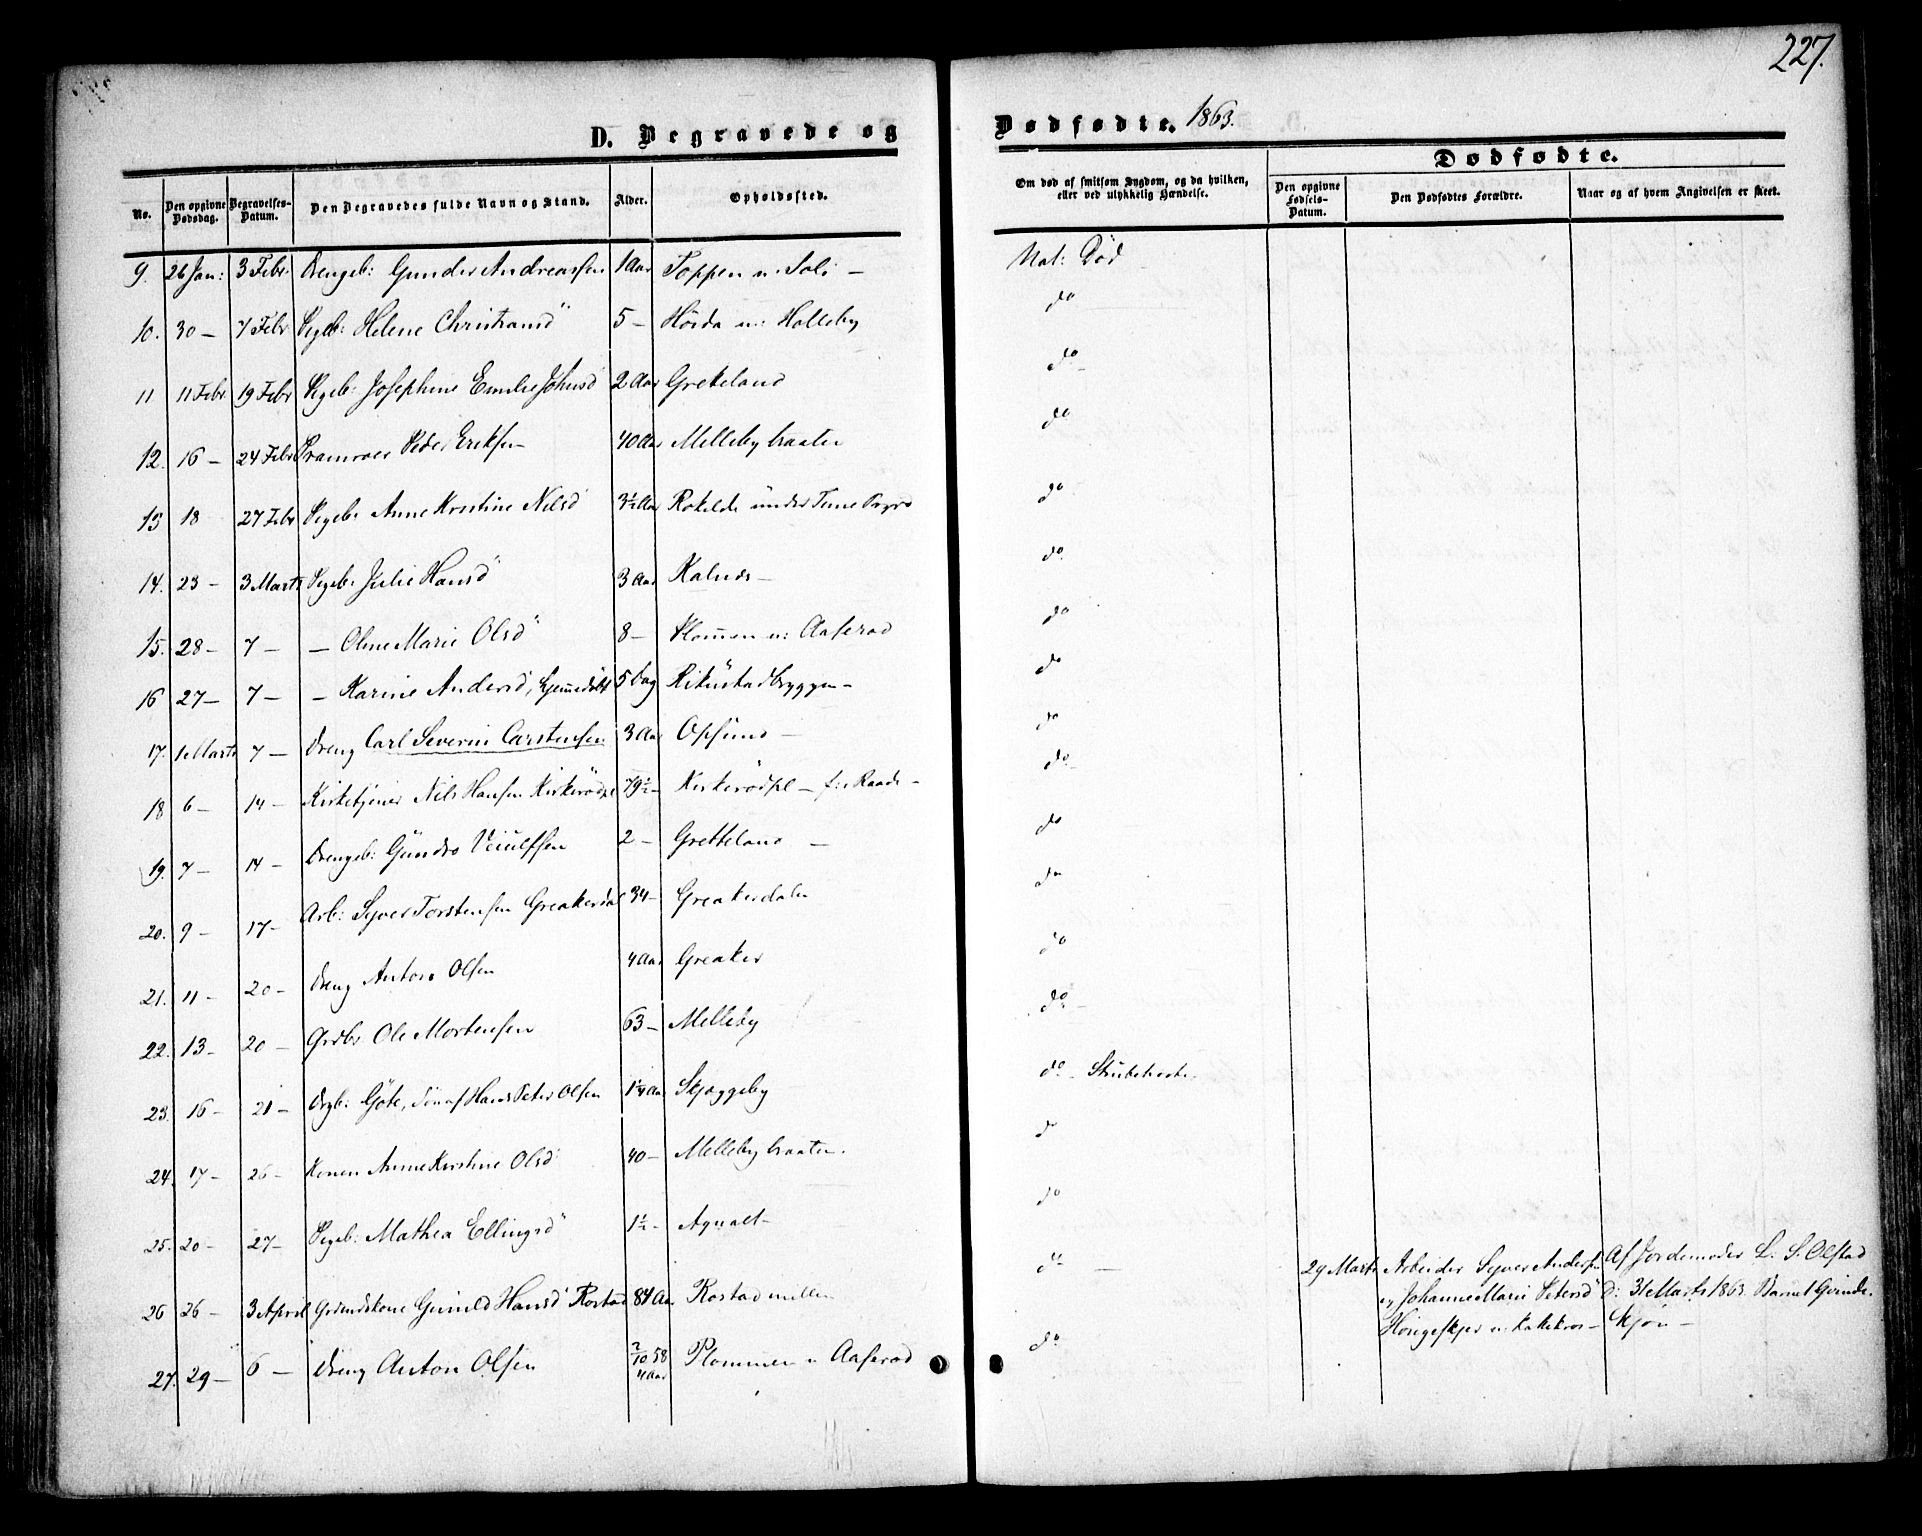 227.
D. Begravede og Dødfødte. 1863.
No. Den opgivne Dødsdag. Begravelses-Datum. Den Begravedes fulde Navn og Stand. Alder. Opholdssted. Om død af smitsom Sygdom, og da hvilken, eller ved ulykkelig Hændelse.
Dødfødte.
Den opgivne Fødsels-Datum. Den Dødfødtes Forældre. Naar og af hvem Angivelsen er skeet.
9. 26 Jan: 3 Febr. Drengeb: Gunder Andreassen 1 Aar Toppen u: Soli — Nat: Død
10. 30 — 7 Febr Pigeb: Helene Christiansd" 5 — u: Halleby do
11 11 Febr 19 Febr Pigeb: Josephine Emilie Johnsd 2 Aar Grekeland do
12. 16 — 24 Febr Peder Eriksen 40 Aar Mellebybraaten do
13 18 27 Febr Pigeb: Anne Kristine Nilsd 3½ Aar Rokilde under Tune do
14. 23 — 3 Marts Pigeb: Julie Hansd" 3 Aar Kalnæs — do.
15. 28 — 7 — — Oline Marie Olsd" 8 — Plommen u: Aaserød do
16 27 — 7 — — Karine Andersd, hjemedøbt 5 Dag do
17. 1 Marts 7 — Dreng Carl Severin Carstensen 3 Aar Opsund — do
18 6 — 14 — Kirketjener Nils Hansen Kirkerødpl 79½ — Kirkerødpl — f: Raade — do.
19. 7 — 14 — Drengeb: Gundro 2 — Gretteland — do
20. 9 — 17 — Arb: Syver Torstensen Greakerdal 34 — Greakerdalen do
21. 11 — 20 — Dreng Anton Olsen 4 Aar Greaker do
22. 13 — 20 — Grdbr Ole Mortensen 63 — Melleby do. —
23. 16 — 21 — Drgb: Göte, Sön af Hans Peter Olsen 1¼ Aar Skjæggeby do — Strubehoste.
24. 17 — 26 — Konen Anne Kirstine Olsd 40 — Mellebybraaten. do
25. 20 — 27 — Pigeb: Mathea Ellingsd" 1½ — Agnalt — do
26 26 — 3 April Grdmdskone Gunild Hansd Rostad 84 Aar Rostadmellem do —
27. 29 — 6 — Dreng Anton Olsen 2/10 58 4 Aar Plommen u Aaserød do.
29 Marts Arbeider Syver Andersen Af Jordemoder L: S. Olstad
og Johanne Marie Petersd D: 31 Marts 1863. Barnet Qvinde-
Kjøn —